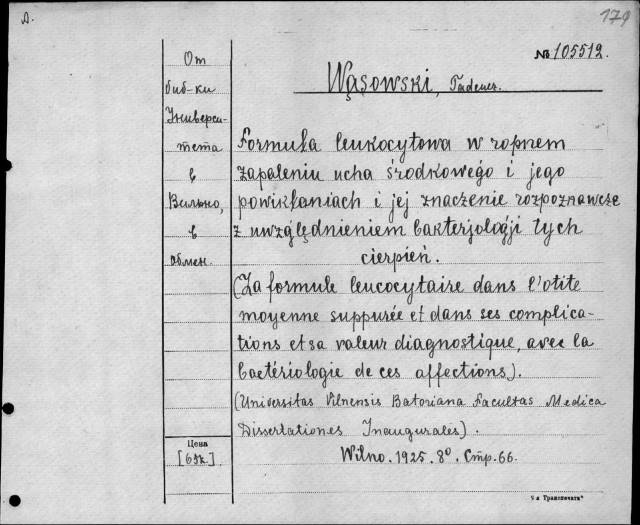 D.
179
№ 105512.
От
биб-ки
Универси-
тета
в
Вильно,
в
обмен.
Wąsowski, Tadeusz.
Formuła leukocytowa w ropnem
zapaleniu ucha środkowego i jego
powikłaniach i jej znaczenie rozpoznawcze
z uwzględnieniem bakterjologji tych
cierpień.
(La formule leucocytaire dans l'otite
moyenne suppurée et dans ses complica-
tions et sa valeur diagnostique, avec la
bactériologie de ces affections).
(Universitas Vilnensis Batoriana Facultas Medica
Dissertationes Inaugurales).
Wilno. 1925. 8°. Стр. 66.
Цена
9-я Транспечать"